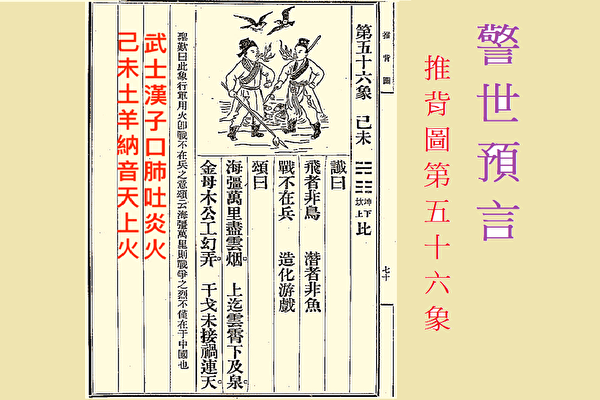 警世預言
推背圖第五十六象
推背圖
七十
第五十六象 己未 ☵☷ 坤下坎上 比
讖曰
飛者非鳥 潛者非魚
戰不在兵 造化游戲
頌曰
海疆萬里盡雲烟。上迄雲霄下及泉。
金母木公工幻弄。干戈未接禍連天。
聖歎曰此象行軍用火即戰不在兵之意頌云海疆萬里則戰爭之烈不僅在于中國也
武士漢子口肺吐炎火
己未土羊納音天上火